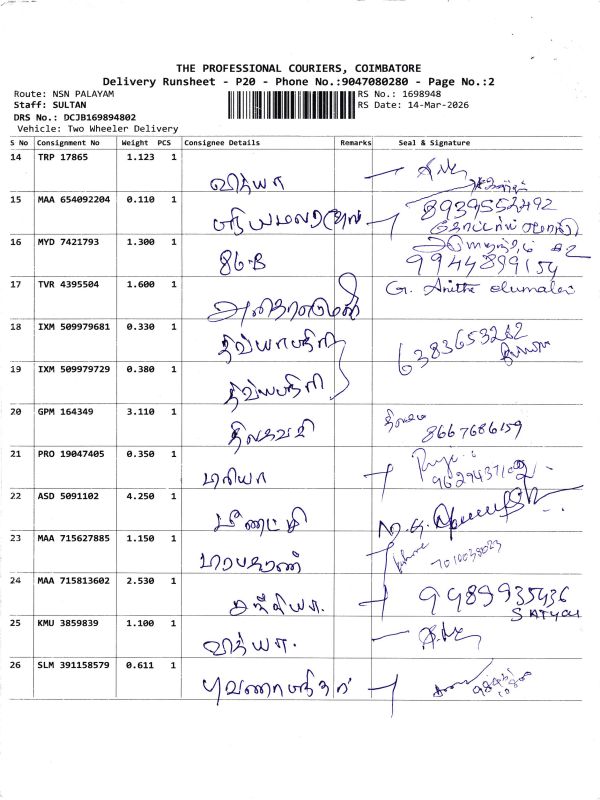 THE PROFESSIONAL COURIERS, COIMBATORE
Delivery Runsheet - P20 - Phone No.:9047080280 - Page No.:2
Route: NSN PALAYAM
RS No.: 1698948
Staff: SULTAN
RS Date: 14-Mar-2026
DRS No.: DCJB169894802
Vehicle: Two Wheeler Delivery
S No Consignment No Weight PCS Consignee Details Remarks Seal & Signature
14 TRP 17865 1.123 1 வித்யா
15 MAA 654092204 0.110 1 8939552492
16 MYD 7421793 1.300 1 86-B 9944899154
17 TVR 4395504 1.600 1 G. Anitha elumalai
18 IXM 509979681 0.330 1 திவ்யாபதினி 6383653282
19 IXM 509979729 0.380 1
20 GPM 164349 3.110 1 திலகவதி 8667686159
21 PRO 19047405 0.350 1 மரியா
22 ASD 5091102 4.250 1 மீனாட்சி
23 MAA 715627885 1.150 1 7010038023
24 MAA 715813602 2.530 1 9489935436
SATYA
25 KMU 3859839 1.100 1 வித்யா.
26 SLM 391158579 0.611 1